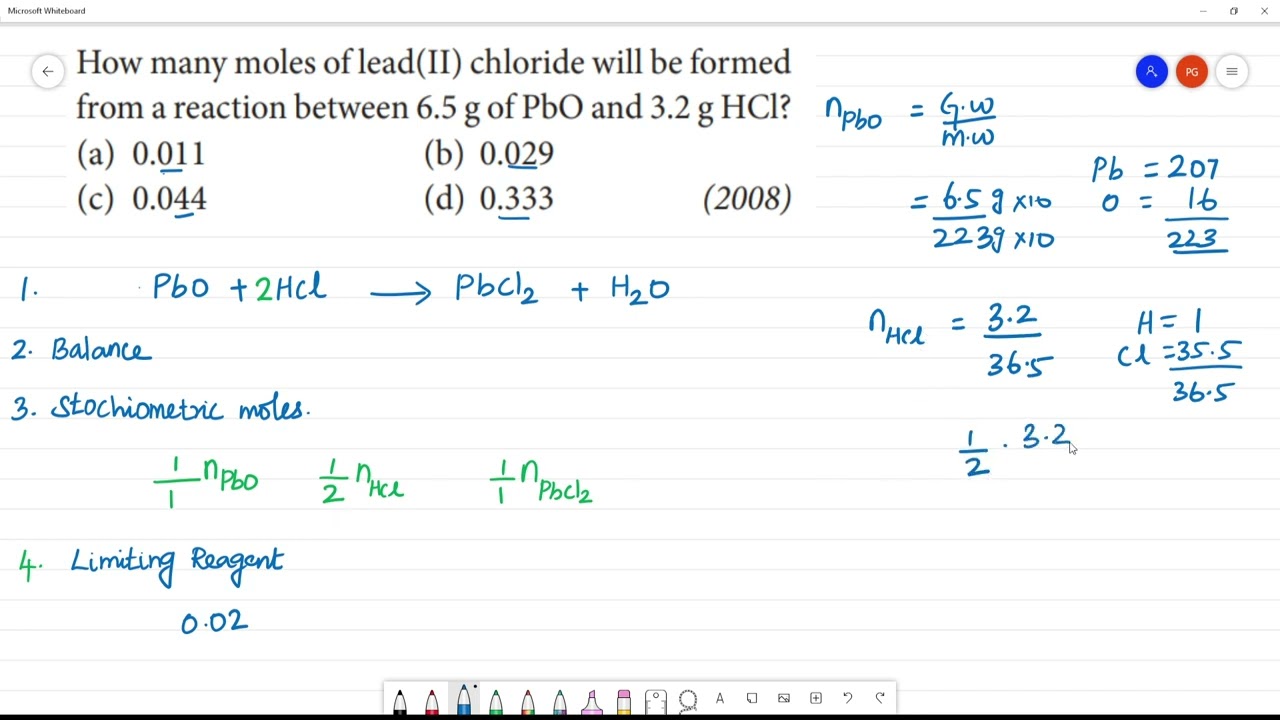 Microsoft Whiteboard
PG
How many moles of lead(II) chloride will be formed
from a reaction between 6.5 g of PbO and 3.2 g HCl?
(a) 0.011 (b) 0.029
(c) 0.044 (d) 0.333 (2008)
1. PbO + 2HCl ⟶ PbCl₂ + H₂O
2. Balance
3. Stochiometric moles.
1/1 nPbO 1/2 nHCl 1/1 nPbCl₂
4. Limiting Reagent
0.02
nPbO = G.W/M.W
= 6.5g×10/223g×10
Pb = 207
O = 16
223
nHCl = 3.2/36.5
H = 1
Cl = 35.5
36.5
1/2 . 3.2
A